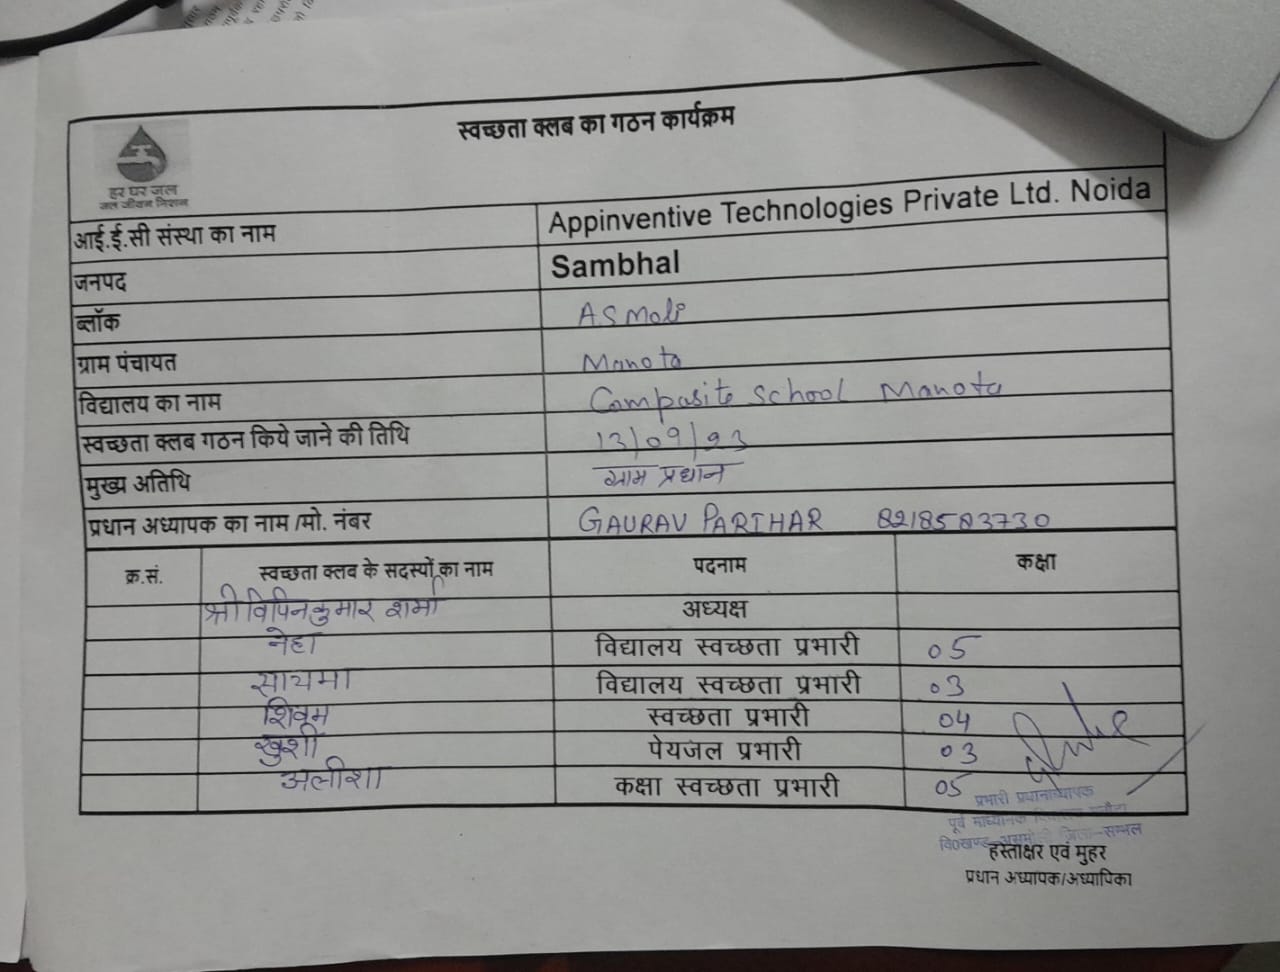 स्वच्छता क्लब का गठन कार्यक्रम
हर घर जल
जल जीवन मिशन
आई.ई.सी संस्था का नाम Appinventive Technologies Private Ltd. Noida
जनपद Sambhal
ब्लॉक ASmoli
ग्राम पंचायत Manota
विद्यालय का नाम Compasite School Manota
स्वच्छता क्लब गठन किये जाने की तिथि 13/09/23
मुख्य अतिथि ग्राम प्रधान
प्रधान अध्यापक का नाम /मो. नंबर GAURAV PARIHAR 8218583730
क्र.सं. स्वच्छता क्लब के सदस्यों का नाम पदनाम कक्षा
श्री विपिन कुमार शर्मा अध्यक्ष
नेहा विद्यालय स्वच्छता प्रभारी 05
सायमा विद्यालय स्वच्छता प्रभारी 03
शिवम स्वच्छता प्रभारी 04
खुशी पेयजल प्रभारी 03
अलीशा कक्षा स्वच्छता प्रभारी 05
प्रभारी प्रधानाध्यापक
पूर्व माध्यमिक
वि०खण्ड-असमोली जिला-सम्भल
हस्ताक्षर एवं मुहर
प्रधान अध्यापक/अध्यापिका